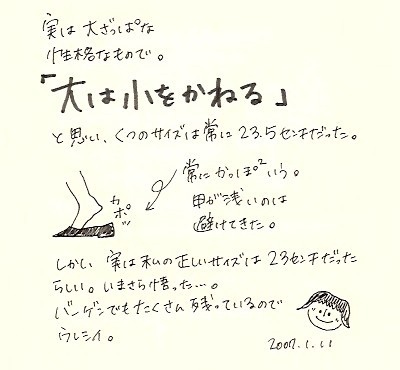 実は大ざっぱな
性格なもので。
「大は小をかねる」
と思い、くつのサイズは常に23.5センチだった。
常にかっぽ²いう。
カポッ
甲が浅いのは
避けてきた。
しかし実は私の正しいサイズは23センチだった
らしい。いまさら悟った…。
バーゲンでもたくさん残っているので
ウレシイ。
2007.1.11